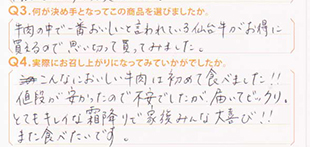 Q3.何が決め手となってこの商品を選びましたか。
牛肉の中で一番おいしいと言われている仙台牛がお得に
買えるので思い切って買ってみました。
Q4.実際お召し上がりになってみていかがでしたか。
こんなにおいしい牛肉は初めて食べました!!
値段が安かったので不安でしたが、届いてビックリ。
とてもキレイな霜降りで家族みんな大喜び!!
また食べたいです。